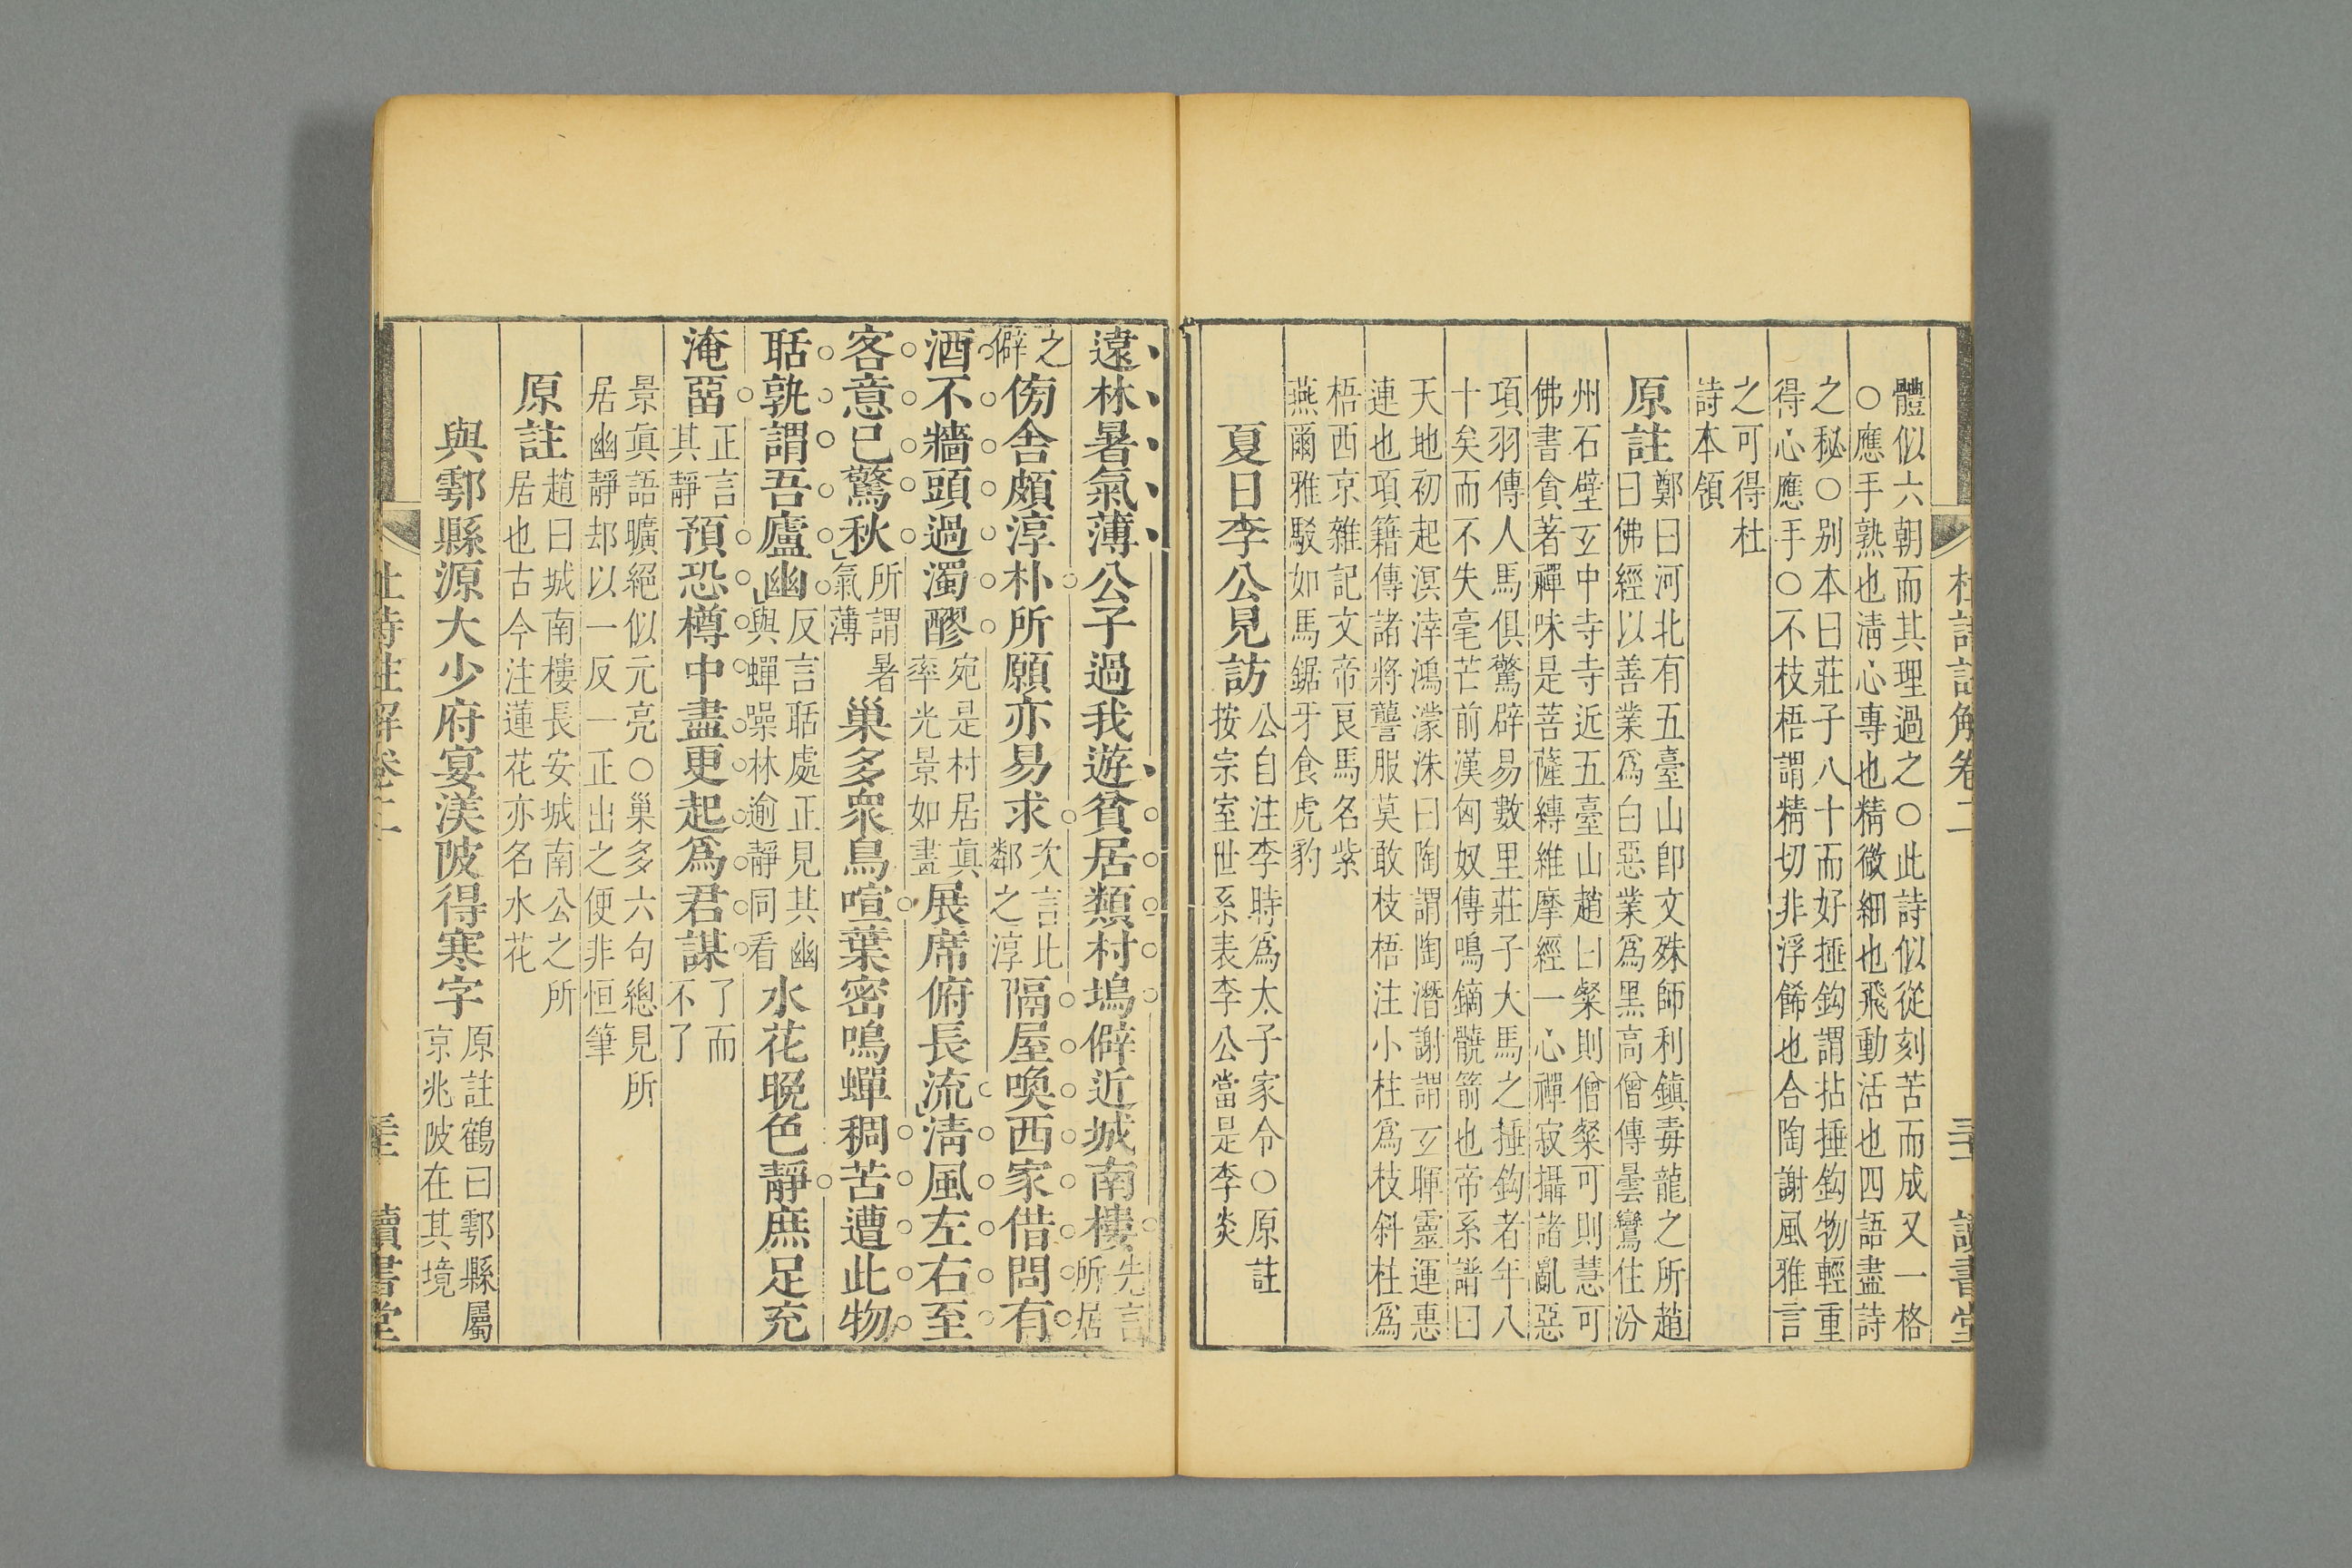 體似六朝而其理過之○此詩似從刻苦而成又一格
○應手熟也淸心專也精微細也飛動活也四語盡詩
之秘○别本曰莊子八十而好捶鈎謂拈捶鈎物輕重
得心應手○不枝梧謂精切非浮餙也合陶謝風雅言
之可得杜
詩本領
原註
鄭曰河北有五臺山卽文殊師利鎭毒龍之所趙
曰佛經以善業爲白惡業爲黑高僧傳曇鸞住汾
州石壁玄中寺寺近五臺山趙曰粲則僧粲可則慧可
佛書貪著禪味是菩薩縛維摩經一心禪寂攝諸亂惡
項羽傳人馬俱驚辟易數里莊子大馬之捶鈎者年八
十矣而不失毫芒前漢匈奴傳鳴鏑髐箭也帝系譜曰
天地初起溟涬鴻濛洙曰陶謂陶潛謝謂玄暉靈運惠
連也項籍傳諸將讋服莫敢枝梧注小柱爲枝斜柱爲
梧西京雜記文帝良馬名紫
燕爾雅駁如馬鋸牙食虎豹
夏日李公見訪
公自注李時爲太子家令○原註
按宗室世系表李公當是李炎
遠林暑氣薄公子過我遊貧居類村塢僻近城南樓
先言
所居
之
僻
傍舍頗淳朴所願亦易求
次言此
鄰之淳
隔屋喚西家借問有
酒不牆頭過濁醪
宛是村居眞
率光景如畫
展席俯長流淸風左右至
客意已驚秋
所謂暑
氣薄
巢多衆鳥喧葉密鳴蟬稠苦遭此物
聒孰謂吾廬幽
反言聒處正見其幽
與蟬噪林逾靜同看
水花晚色靜庶足充
淹畱
正言
其靜
預恐樽中盡更起爲君謀
了而
不了
景眞語曠絕似元亮○巢多六句總見所
居幽靜却以一反一正出之便非恒筆
原註
趙曰城南樓長安城南公之所
居也古今注蓮花亦名水花
與鄠縣源大少府宴渼陂得寒字
原註鶴曰鄠縣屬
京兆陂在其境